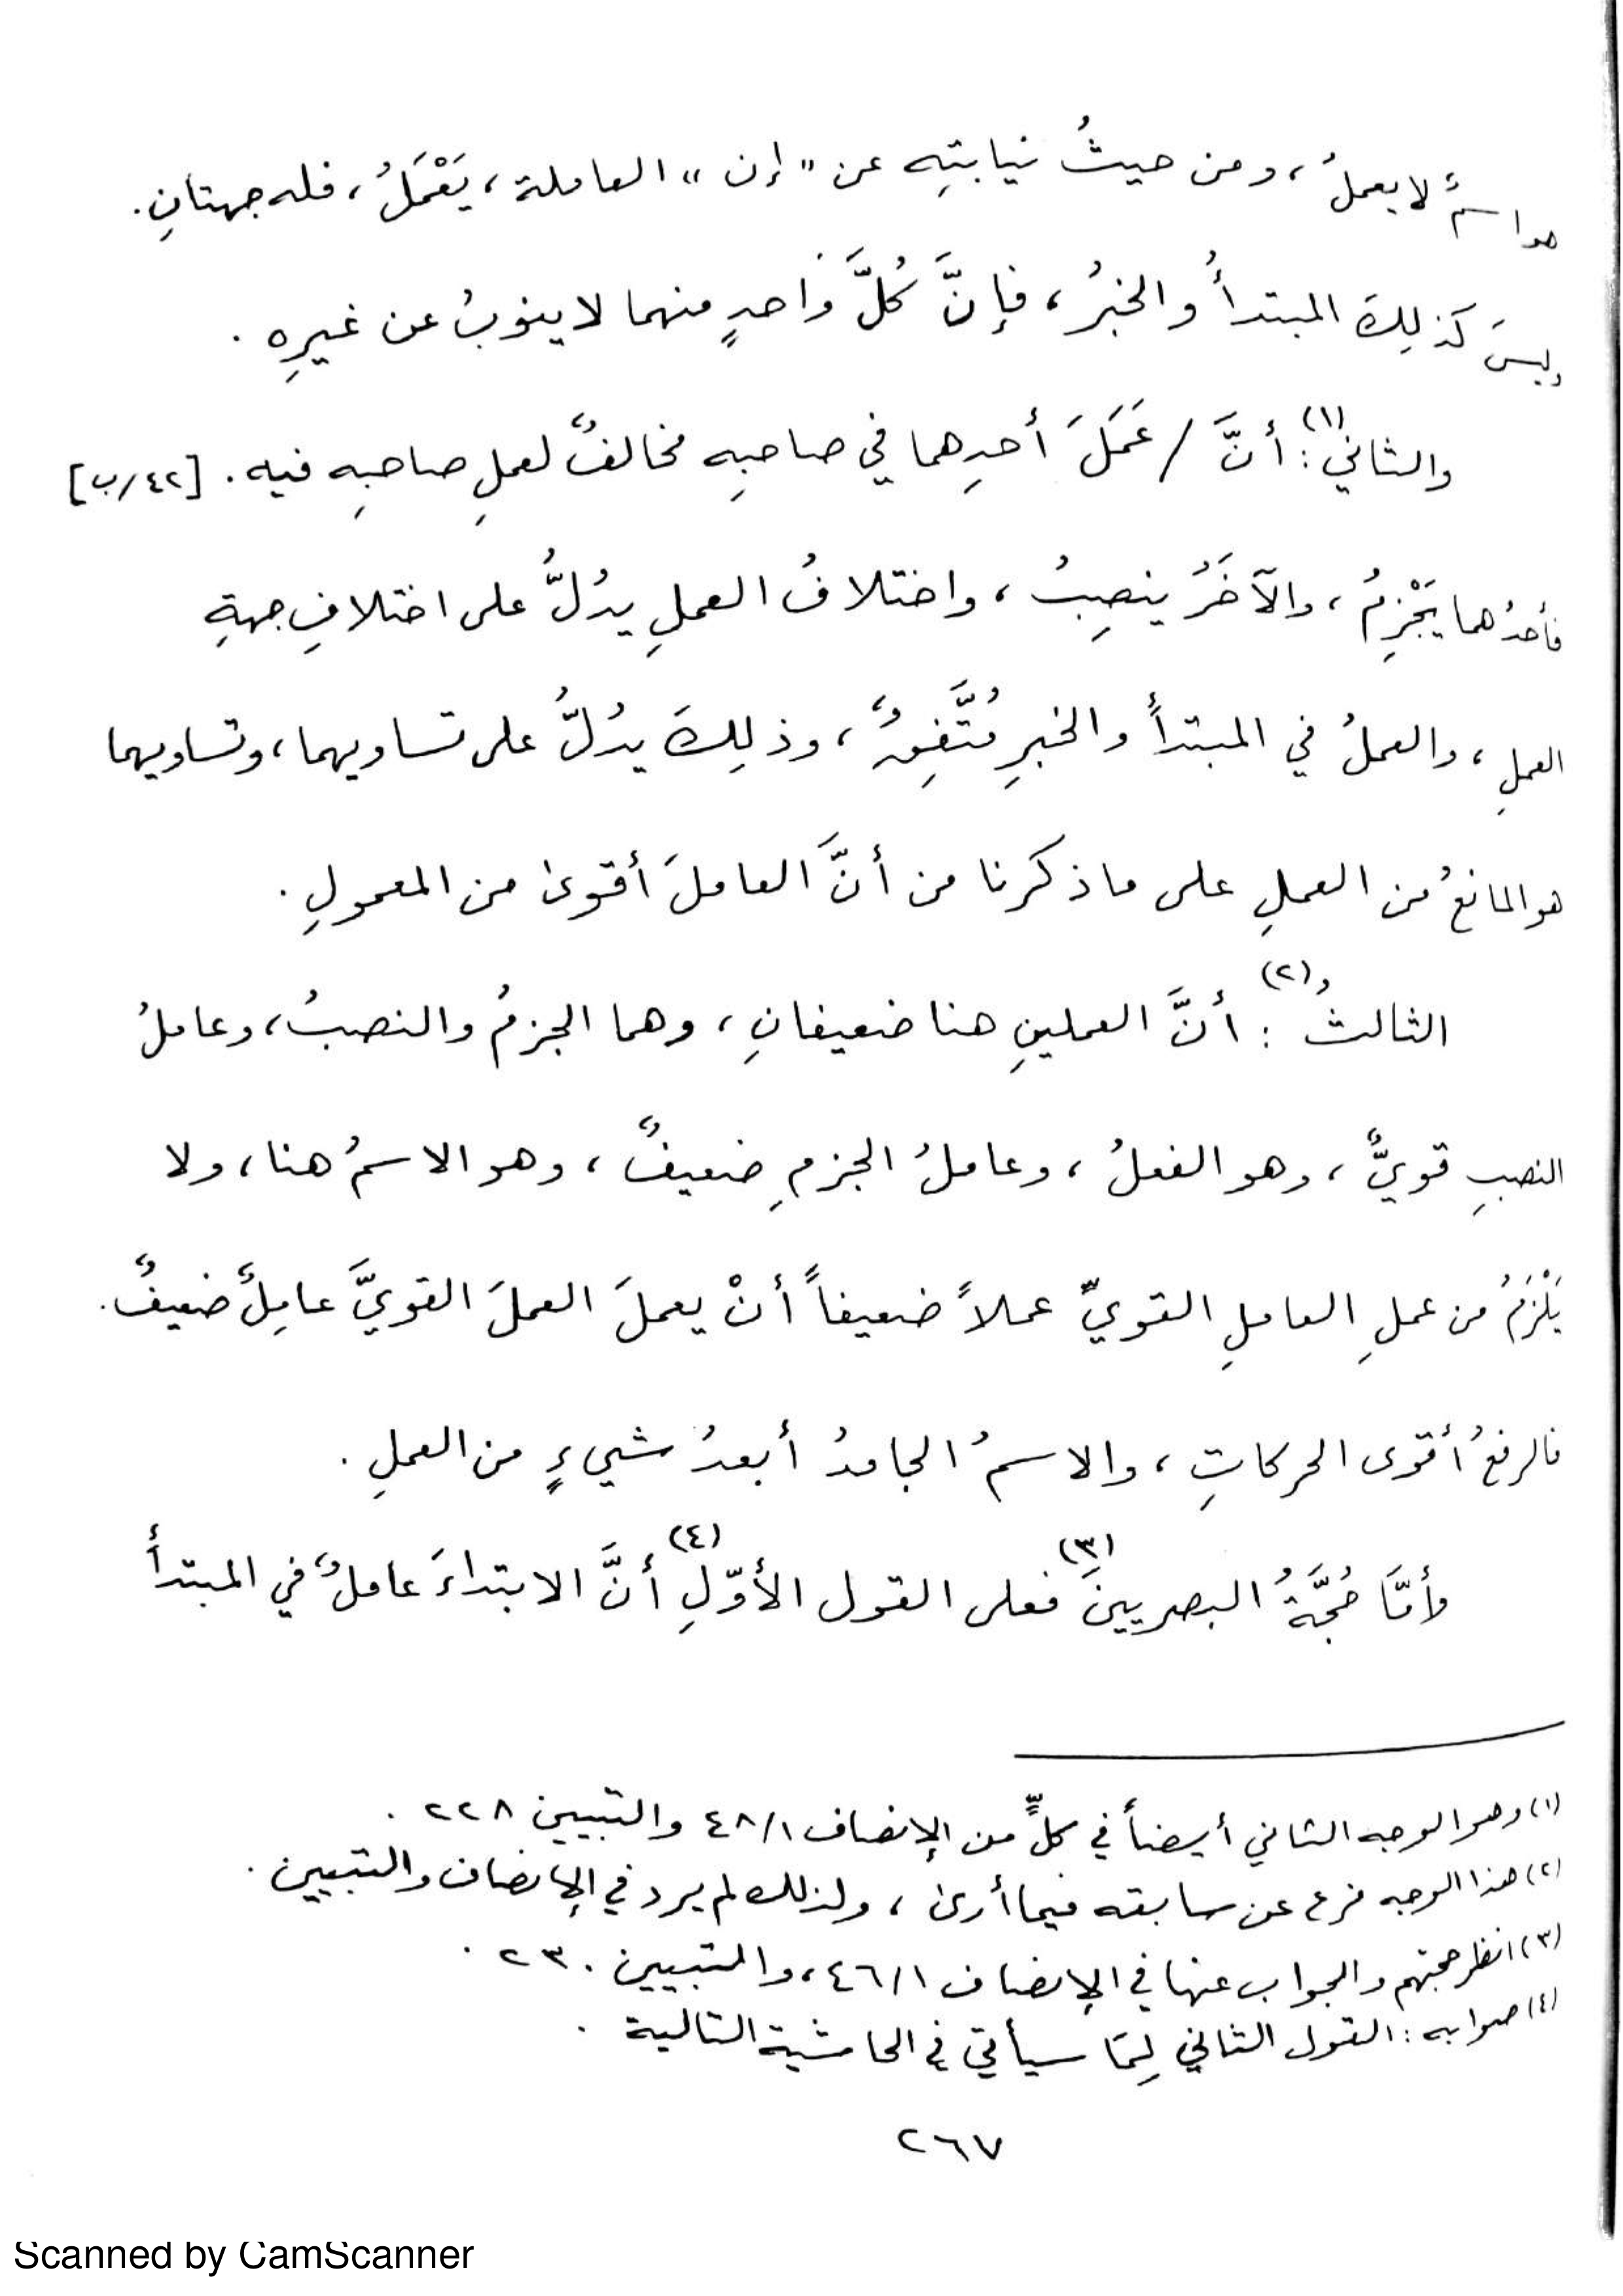 هو اسمٌ لا يعملُ، ومن حيثُ نيابتِه عن "إن" العاملة، يَعْمَلُ، فله جهتانِ.
وليسَ كذلِكَ المبتدأُ والخبرُ، فإنَّ كُلَّ وَاحدٍ منهما لا ينوبُ عن غيرِه .
والثاني(١): أنَّ / عَمَلَ أحدِهما في صاحبِه مخالفٌ لعملِ صاحبِه فيه. [٤٢/ب]
فأحدُهما يَجْزِمُ، والآخَرُ ينصِبُ، واختلافُ العملِ يدُلُّ على اختلافِ جهةِ
العملِ، والعملُ في المبتدأ والخبرِ مُتَّفِقٌ، وذلِكَ يدُلُّ على تساويهما، وتساويهما
هو المانعُ من العملِ على ما ذكرنا من أنَّ العاملَ أقوى من المعمولِ.
والثالثُ(٢) : أنَّ العملينِ هنا ضعيفانِ، وهما الجزمُ والنصبُ، وعاملُ
النصبِ قويٌّ، وهو الفعلُ، وعاملُ الجزمِ ضعيفٌ، وهو الاسمُ هنا، ولا
يَلْزَمُ من عملِ العاملِ القويِّ عملاً ضعيفاً أنْ يعملَ العملَ القويَّ عامِلٌ ضعيفٌ.
فالرفعُ أقوى الحركاتِ، والاسمُ الجامدُ أبعدُ شيءٍ من العملِ .
وأمَّا حُجَّةُ البصريينَ(٣) فعلى القول الأوّلِ(٤) أنَّ الابتداءَ عاملٌ في المبتدأ
(١) وهو الوجه الثاني أيضاً في كلٍّ من الإنصاف ٤٨/١ والتبيين ٢٢٨ .
(٢) هذا الوجه فرع عن سابقه فيما أرى، ولذلك لم يرد في الإنصاف والتبيين .
(٣) انظر حجتهم والجواب عنها في الإنصاف ٤٦/١، والتبيين ٢٣٠ .
(٤) صوابه: القول الثاني لِمَا سيأتي في الحاشية التالية .
٢٦٧
Scanned by CamScanner